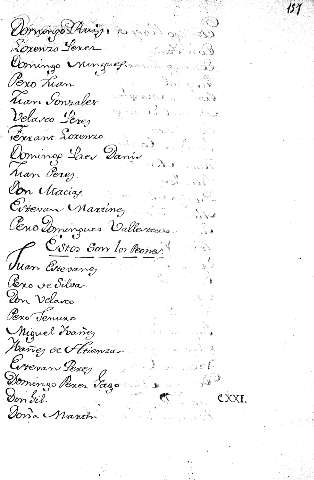 137
Domingo Ruiz
Lorenzo Perez
Domingo Minguez
Pero Juan
Juan Gonzalez
Velasco Perez
Ferrant Lorenzo
Domingo
Juan Perez
Don Macias
Estevan Martinez
Pero Domingues
Estos son los Peones
Juan Estevanez
Pero de Silva
Don Velasco
Pero
Miguel Ibañez
Ibañez de Atienza
Estevan Perez
Domingo Perez
Don Gil
CXXI.
Doña